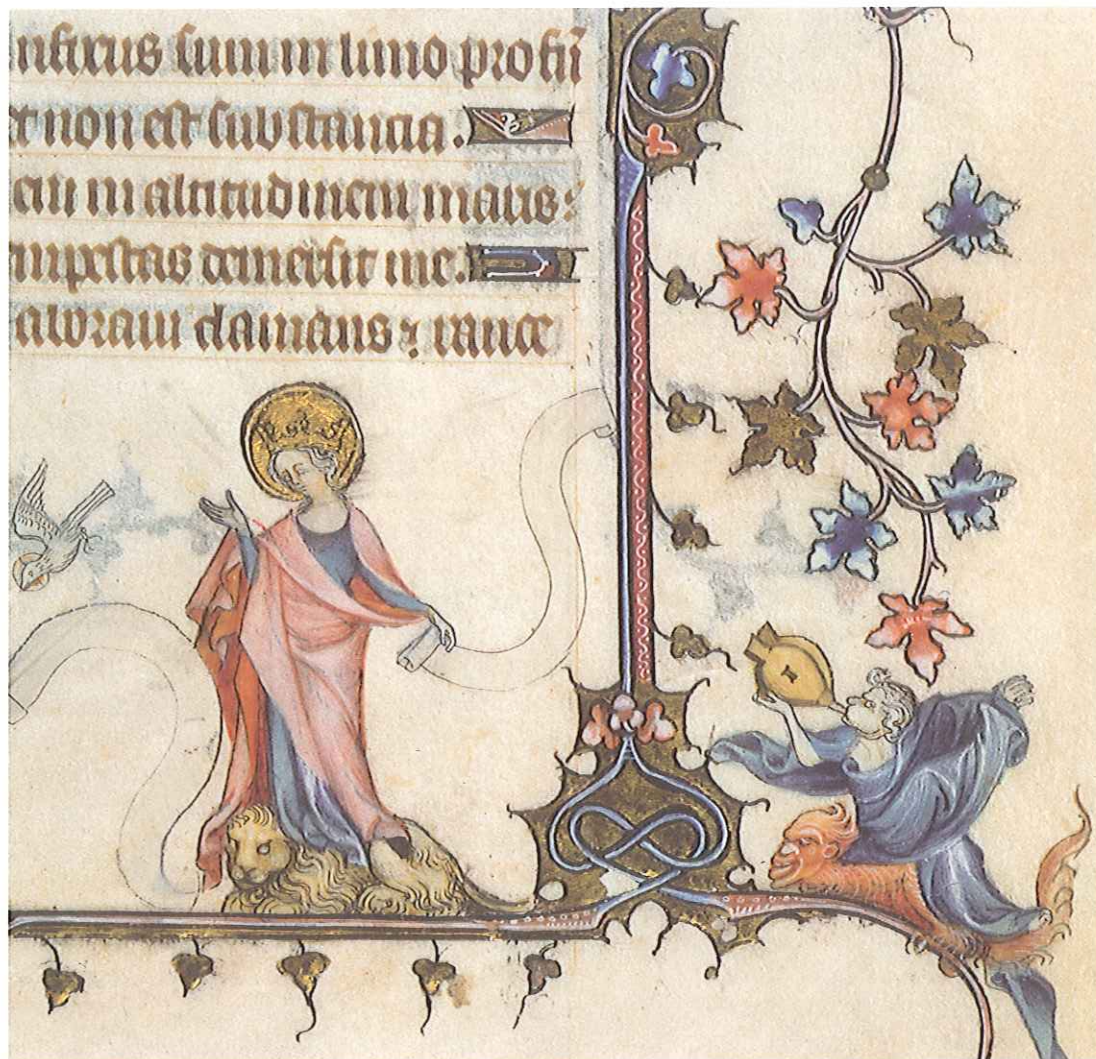 nfixus sum in limo profū
et non est substancia.
em in altitudinem maris:
mpestas demersit me.
aboraui clamans ⁊ rauce